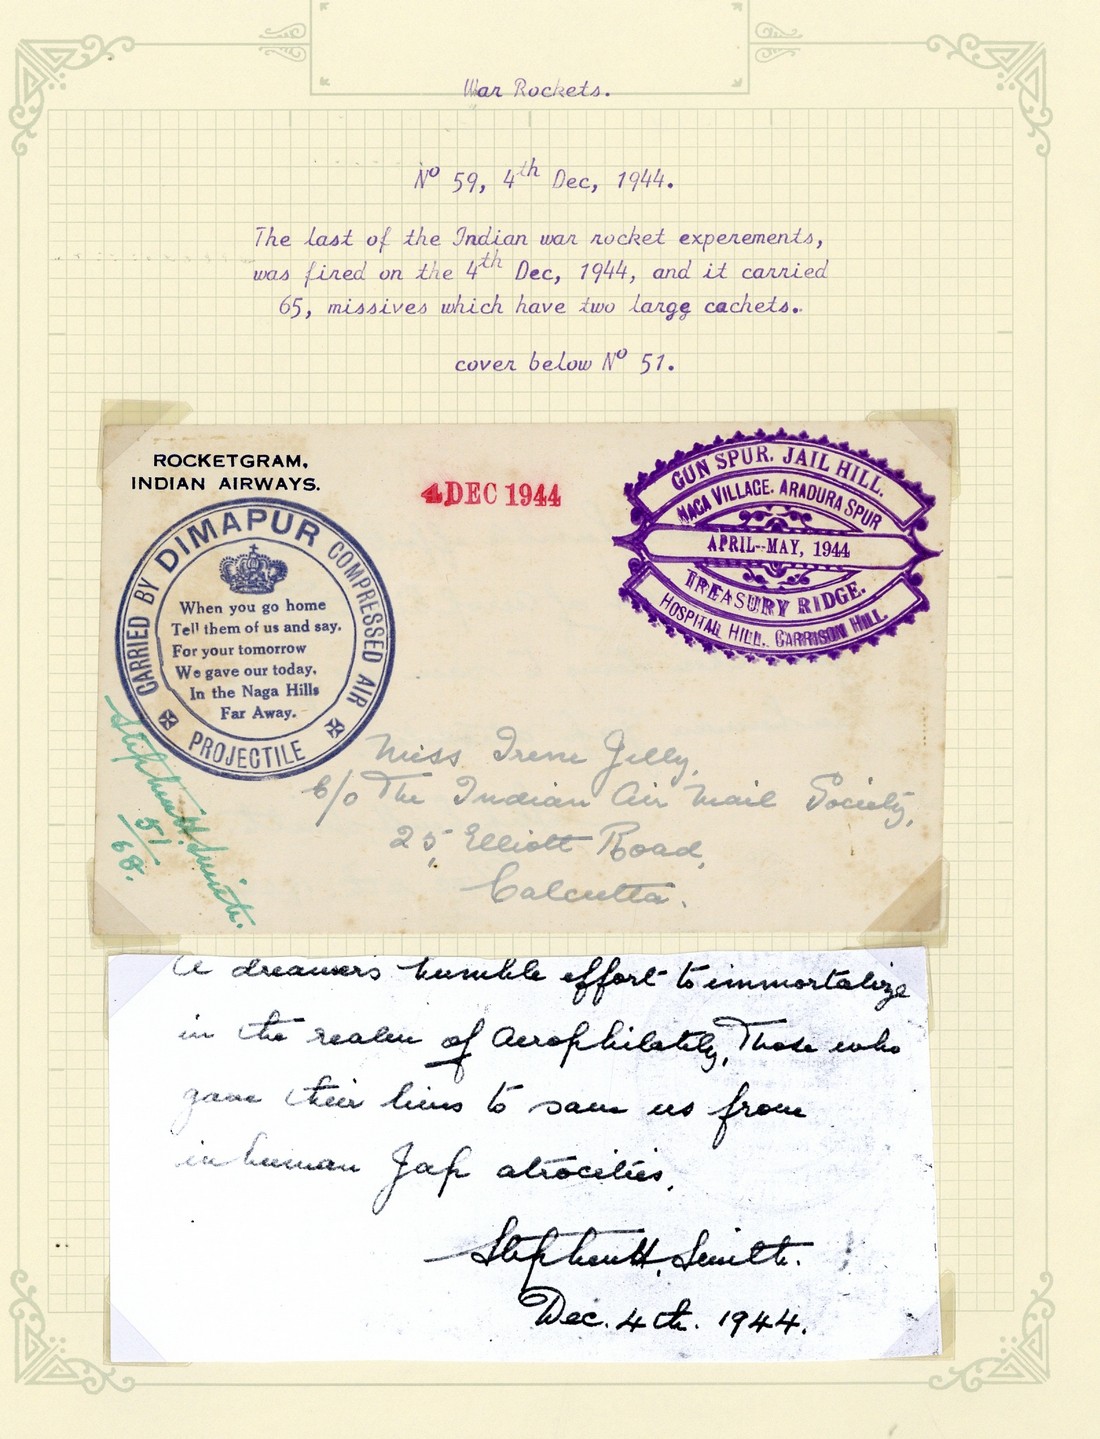 War Rockets.
Nº 59, 4th Dec, 1944.
The last of the Indian war rocket experements,
was fired on the 4th Dec, 1944, and it carried
65, missives which have two large cachets.
cover below Nº 51.
ROCKETGRAM,
INDIAN AIRWAYS.
4 DEC 1944
GUN SPUR. JAIL HILL.
NAGA VILLAGE. ARADURA SPUR
APRIL--MAY, 1944
TREASURY RIDGE.
HOSPITAL HILL. GARRISON HILL.
CARRIED BY DIMAPUR COMPRESSED AIR
PROJECTILE
When you go home
Tell them of us and say.
For your tomorrow
We gave our today.
In the Naga Hills
Far Away.
Stephen H. Smith.
51
65.
Miss Irene Jelly,
C/o The Indian Air Mail Society,
25, Elliott Road,
Calcutta.
A dreamer's humble effort to immortalize
in the realm of Aerophilately, Those who
gave their lives to save us from
inhuman Jap atrocities.
Stephen H. Smith.
Dec. 4th. 1944.